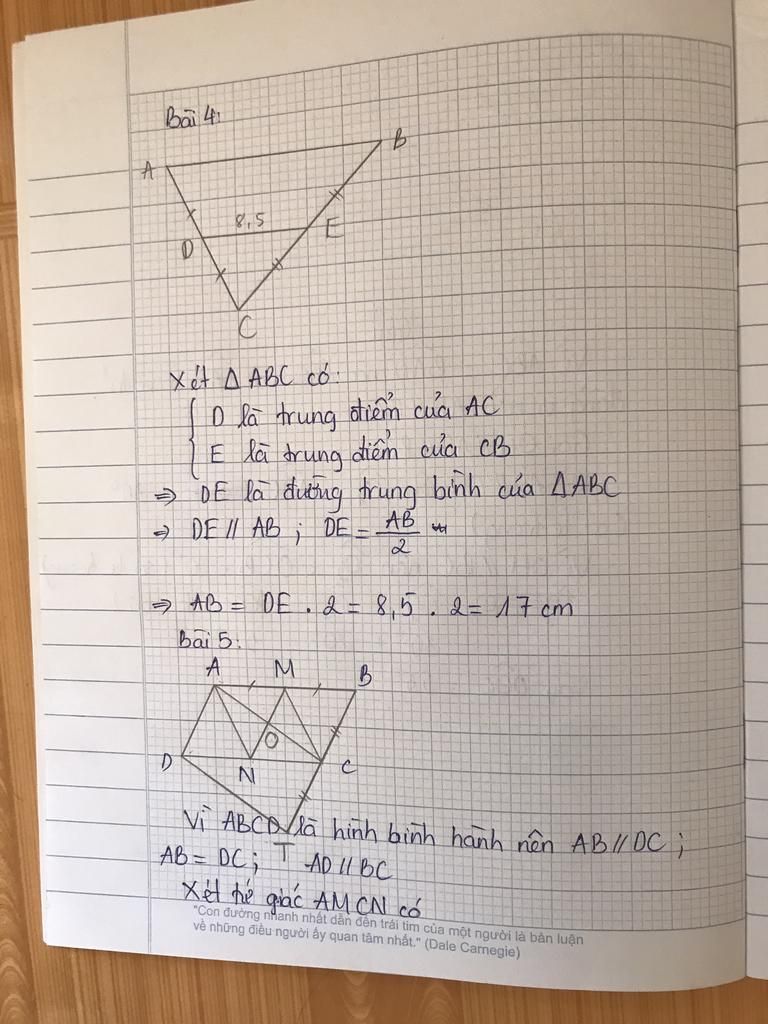 Bài 4:
A
B
8,5
D
E
C
Xét Δ ABC có:
D là trung điểm của AC
E là trung điểm của CB
⇒ DE là đường trung bình của ΔABC
⇒ DE // AB ; DE = AB/2
⇒ AB = DE . 2 = 8,5 . 2 = 17 cm
Bài 5:
A M B
O
D N C
Vì ABCD là hình bình hành nên AB // DC ;
AB = DC ; T AD // BC
Xét tứ giác AMCN có
"Con đường nhanh nhất dẫn đến trái tim của một người là bàn luận
về những điều người ấy quan tâm nhất." (Dale Carnegie)